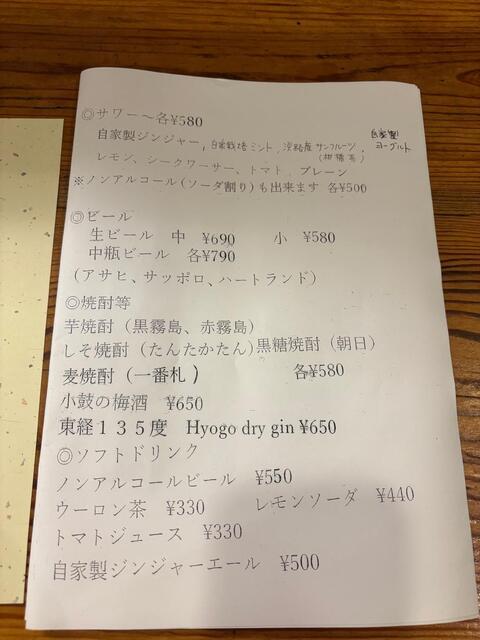 ◎サワー～各¥580
自家製ジンジャー, 自家栽培ミント, 淡路産サンフルーツ, (柑橘系) 自家製ヨーグルト
レモン、シークワーサー、トマト、プレーン
※ノンアルコール(ソーダ割り)も出来ます 各¥500
◎ビール
生ビール 中 ¥690 小 ¥580
中瓶ビール 各¥790
(アサヒ、サッポロ、ハートランド)
◎焼酎等
芋焼酎(黒霧島、赤霧島)
しそ焼酎(たんたかたん)黒糖焼酎(朝日)
麦焼酎(一番札) 各¥580
小鼓の梅酒 ¥650
東経135度 Hyogo dry gin ¥650
◎ソフトドリンク
ノンアルコールビール ¥550
ウーロン茶 ¥330 レモンソーダ ¥440
トマトジュース ¥330
自家製ジンジャーエール ¥500